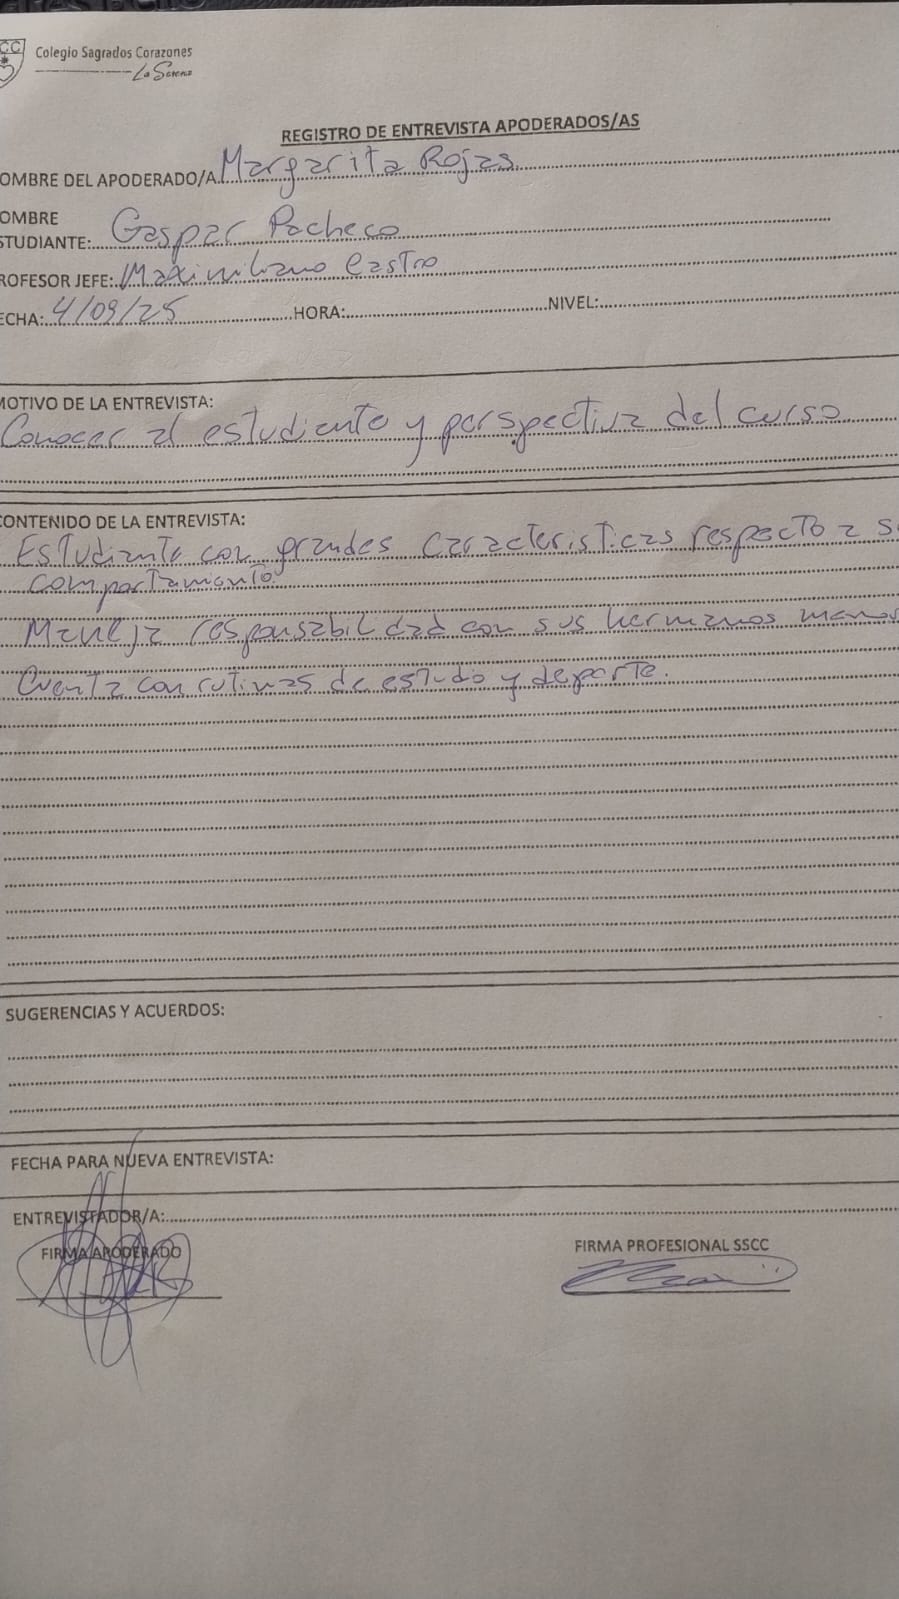 CC
Colegio Sagrados Corazones
La Serena
REGISTRO DE ENTREVISTA APODERADOS/AS
OMBRE DEL APODERADO/A Margarita Rojas
OMBRE
STUDIANTE: Gaspar Pacheco
ROFESOR JEFE: Maximiliano Castro
ECHA: 4/09/25 HORA: NIVEL:
MOTIVO DE LA ENTREVISTA:
Conocer al estudiante y perspectiva del curso
CONTENIDO DE LA ENTREVISTA:
Estudiante con grandes caracteristicas respecto a s
comportamiento
Maneja responsabilidad con sus hermanos menos
Cuenta con rutinas de estudio y deporte.
SUGERENCIAS Y ACUERDOS:
FECHA PARA NUEVA ENTREVISTA:
ENTREVISTADOR/A:
FIRMA APODERADO
FIRMA PROFESIONAL SSCC